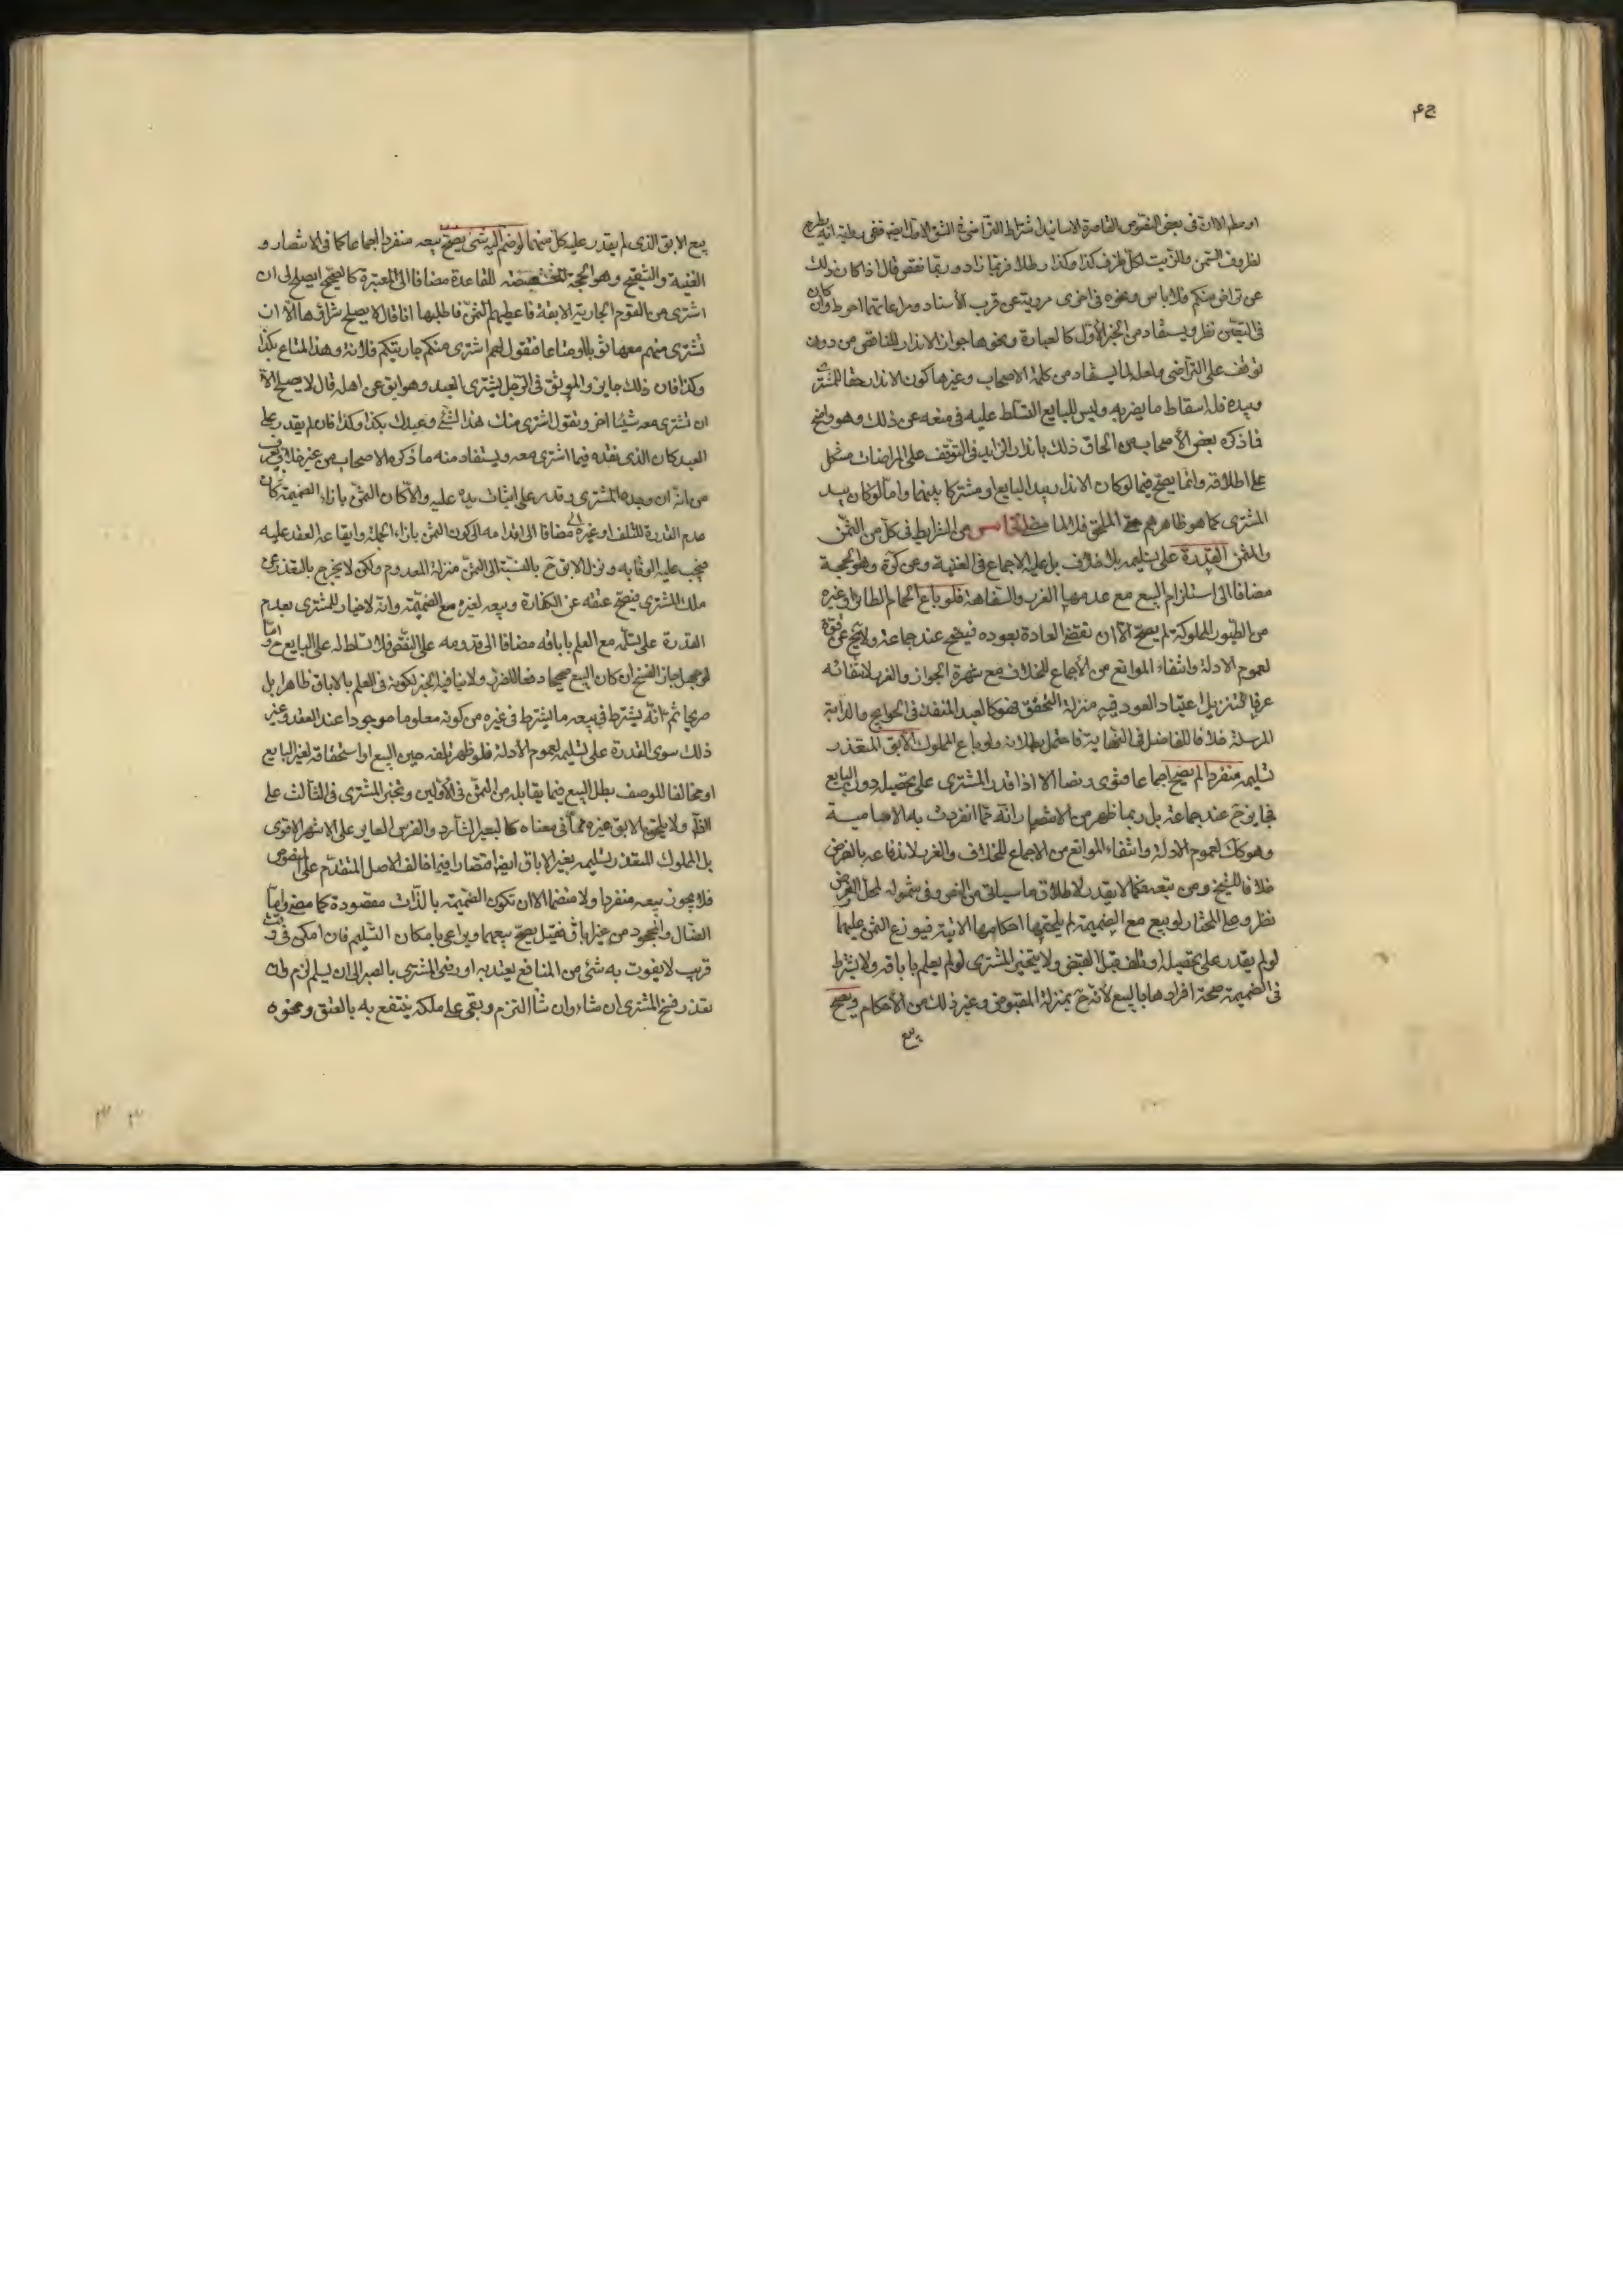 او سطه الا ان فى بعض النصوص القاصرة الاسانيد اشتراط التراضى فى الشق الاول ايضا ففى بعضها انه يطرح
لظروف السمن والزيت لكل ظرف كذا وكذا رطلا فربما زاد وربما نقص قال اذا كان ذلك
عن تراض منكم فلا باس ونحوه فى اخرى مروية عن قرب الأسناد ومراعاتهما احوط وان كان
فى التعين نظر ويستفاد من الخبر الأول كالعبارة ونحوها جواز الاندار للناقص من دون
توقف على التراضى ولعله لما يستفاد من كلمة الاصحاب وغيرها كون الاندار حقا للمشترى
وبيده فله اسقاط ما يضر به وليس للبايع التسلط عليه فى منعه عن ذلك وهو واضح
فما ذكره بعض الأصحاب من الحاق ذلك باندار الزايد فى التوقف على المراضات مشكل
على اطلاقه وانما يصح فيما لو كان الاندار بيد البايع او مشتركا بينهما واما لو كان بيد
المشترى كما هو ظاهرهم فلا لما مضى الخامس من الشرايط فى كل من الثمن
والمثمن القدرة على تسليمه بلا خلاف بل عليه الاجماع فى الغنية وعن كرة وهو الحجة
مضافا الى استلزام البيع مع عدمها الغرر والسفاهة فلو باع الحمام الطائر او غيره
من الطيور المملوكة لم يصح الا ان تقضى العادة بعوده فيصح عند جماعة ولا يخ عن قوة
لعموم الادلة وانتفاء الموانع من الأجماع للخلاف مع شهرة الجواز والغرر لانتفائه
عرفا لتنزيل اعتياد العود فيه منزلة التحقق فهو كالعبد المنفذ فى الحوايج والدابة
المرسلة خلافا للفاضل فى النهاية فاحتمل بطلانه ولو باع المملوك الآبق المتعذر
تسليمه منفردا لم يصح اجماعا فتوى ونصا الا اذا قدر المشترى على تحصيله دون البايع
فجايز ح عند جماعة بل ربما ظهر من الانتصار انه مما انفردت به الامامية
وهو كك لعموم الادلة وانتفاء الموانع من الاجماع للخلاف والغرر لاندفاعه بالفرض
خلافا للشيخ ومن تبعه فكما لا يقدر لاطلاق ما سياتى من النص وفى شموله لمحل الفرض
نظر وعلى المختار لو بيع مع الضميمة لم يلحقها احكامها الاتية فيوزع الثمن عليهما
لو لم يقدر على تحصيله او تلف قبل القبض ولا يتخير المشترى لو لم يعلم باباقه ولا يشترط
فى الضميمة صحة افرادها بالبيع لأنه ح بمنزلة المقبوض وغير ذلك من الأحكام ويصح
بيع
بيع الابق الذى لم يقدر عليه كل منهما لو ضم اليه شئ يصح بيعه منفردا اجماعا كما فى الانتصار و
الغنية والتنقيح وهو الحجة المخصصة للقاعدة مضافا الى المعتبرة كالصحيح ايصلح لى ان
اشترى من القوم الجارية الابقة فاعطيهم الثمن فاطلبها انا فقال لا يصلح شراؤها الا ان
تشترى منهم معها ثوبا او متاعا فتقول لهم اشترى منكم جاريتكم فلانة وهذا المتاع بكذا
وكذا فان ذلك جايز والموثق فى الرجل يشترى العبد وهو ابق عن اهله قال لا يصلح الا
ان تشترى معه شيئا اخر ويقول اشترى منك هذا الشئ وعبدك بكذا وكذا فان لم يقدر على
العبد كان الذى نقده فيما اشترى معه ويستفاد منه ما ذكره الاصحاب من غير خلاف يعرف
من انه ان وجده المشترى وقدر على اثبات يده عليه والا كان الثمن بازاء الضميمة كان
عدم القدرة للتلف او غيره مضافا الى اقدامه الى كون الثمن بازاء الجملة وايقاعه العقد عليه
فيجب عليه الوفا به ونزل الابق ح بالنسبة الى الثمن منزلة المعدوم ولكن لا يخرج بالتعذر عن
ملك المشترى فيصح عتقه عن الكفارة وبيعه لغيره مع الضميمة وانه لا خيار للمشترى بعدم
القدرة على تسلمه مع العلم باباقه مضافا الى قدومه على النقص فلا تسلط له على البايع ح واما
لو جهل جاز الفسخ ان كان البيع صحيحا دفعا للضرر ولا ينافيه الخبر لكونه فى العلم بالاباق ظاهرا بل
صريحا ثم انه يشترط فى بيعه ما يشترط فى غيره من كونه معلوما موجودا عند العقد وغير
ذلك سوى القدرة على تسليمه لعموم الأدلة فلو ظهر تلفه حين البيع او استحقاقه لغير البايع
او مخالفا للوصف بطل البيع فيما يقابله من الثمن فى الأولين وتخير المشترى فى الثالث على
الظ ولا يلحق بالابق غيره مما فى معناه كالبعير الشارد والفرس العاير على الاشهر الاقوى
بل المملوك المتعذر تسليمه بغير الاباق ايضا اقتصارا فيما خالف الاصل المتقدم على المنصوص
فلا يجوز بيعه منفردا ولا منضما الا ان تكون الضميمة بالذات مقصودة كما مضى واما
الضال والمجحود من غير اباق فقيل يصح بيعهما ويراعى بامكان التسليم فان امكن فى وقت
قريب لا يفوت به شئ من المنافع يعتد به او رضى المشترى بالصبر الى ان يسلم لزم وان
تعذر فسخ المشترى ان شاء وان شاء التزم وبقى على ملكه ينتفع به بالعتق ونحوه